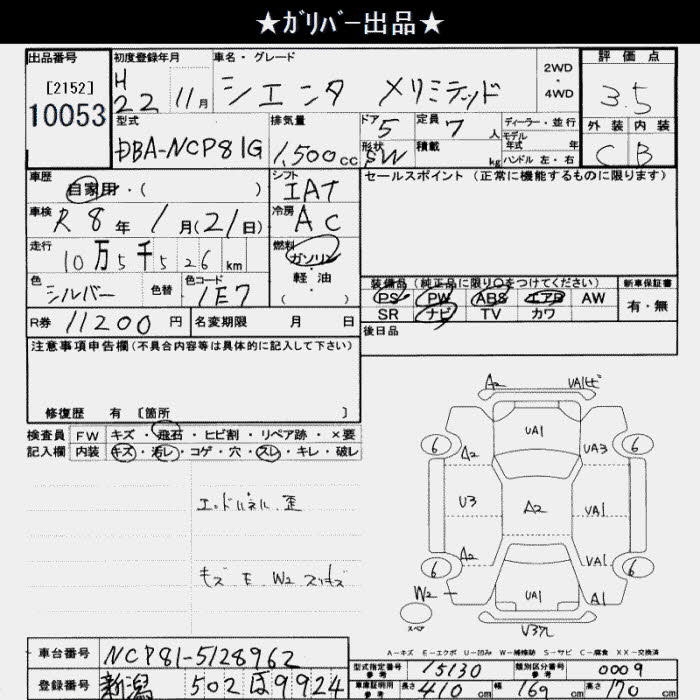 ★ガリバー出品★
出品番号 初度登録年月 車名・グレード 評価点
[2152] H 22 11月 シエンタ メリミテッド 2WD・4WD 3.5
10053
型式 排気量 ドア 定員 ディーラー・並行 外装 内装
DBA-NCP81G 1,500cc 5 7人 モデル年式 年 C B
形状 SW 積載 kg ハンドル 左・右
車歴 シフト セールスポイント(正常に機能するものに限ります)
自家用・( ) IAT
車検 R8年1月(21日) 冷房 AC
走行 10万5千526km 燃料 ガソリン・軽油・( )
色 シルバー 色替 色コード 1E7
装備品(純正品に限り○をつけてください) 新車保証書
PS PW ABS エアB AW 有・無
SR ナビ TV カワ
R券 11200円 名変期限 月 日 後日品
注意事項申告欄(不具合内容等は具体的に記入して下さい)
修復歴 有 [箇所 ]
検査員 FW キズ・飛石・ヒビ割・リペア跡・×要
記入欄 内装 キズ・汚レ・コゲ・穴・スレ・キレ・破レ
A2 VA1ビ
UA1
6 A2 UA3 6
U3 A2 UA1
6 A2 UA1 6
W2 UA1 A1
スペア
エンドパネル 歪
キズ E W2 スリキズ
A-キズ E-エクボ U-凹み W-補修跡 S-サビ C-腐食 XX-交換済
車台番号 NCP81-5128962
型式指定番号 参考 15130 類別区分番号 参考 0009
登録番号 新潟 502 ほ 9924
車庫証明用 参考 長さ 410cm 幅 169cm 高さ 170cm